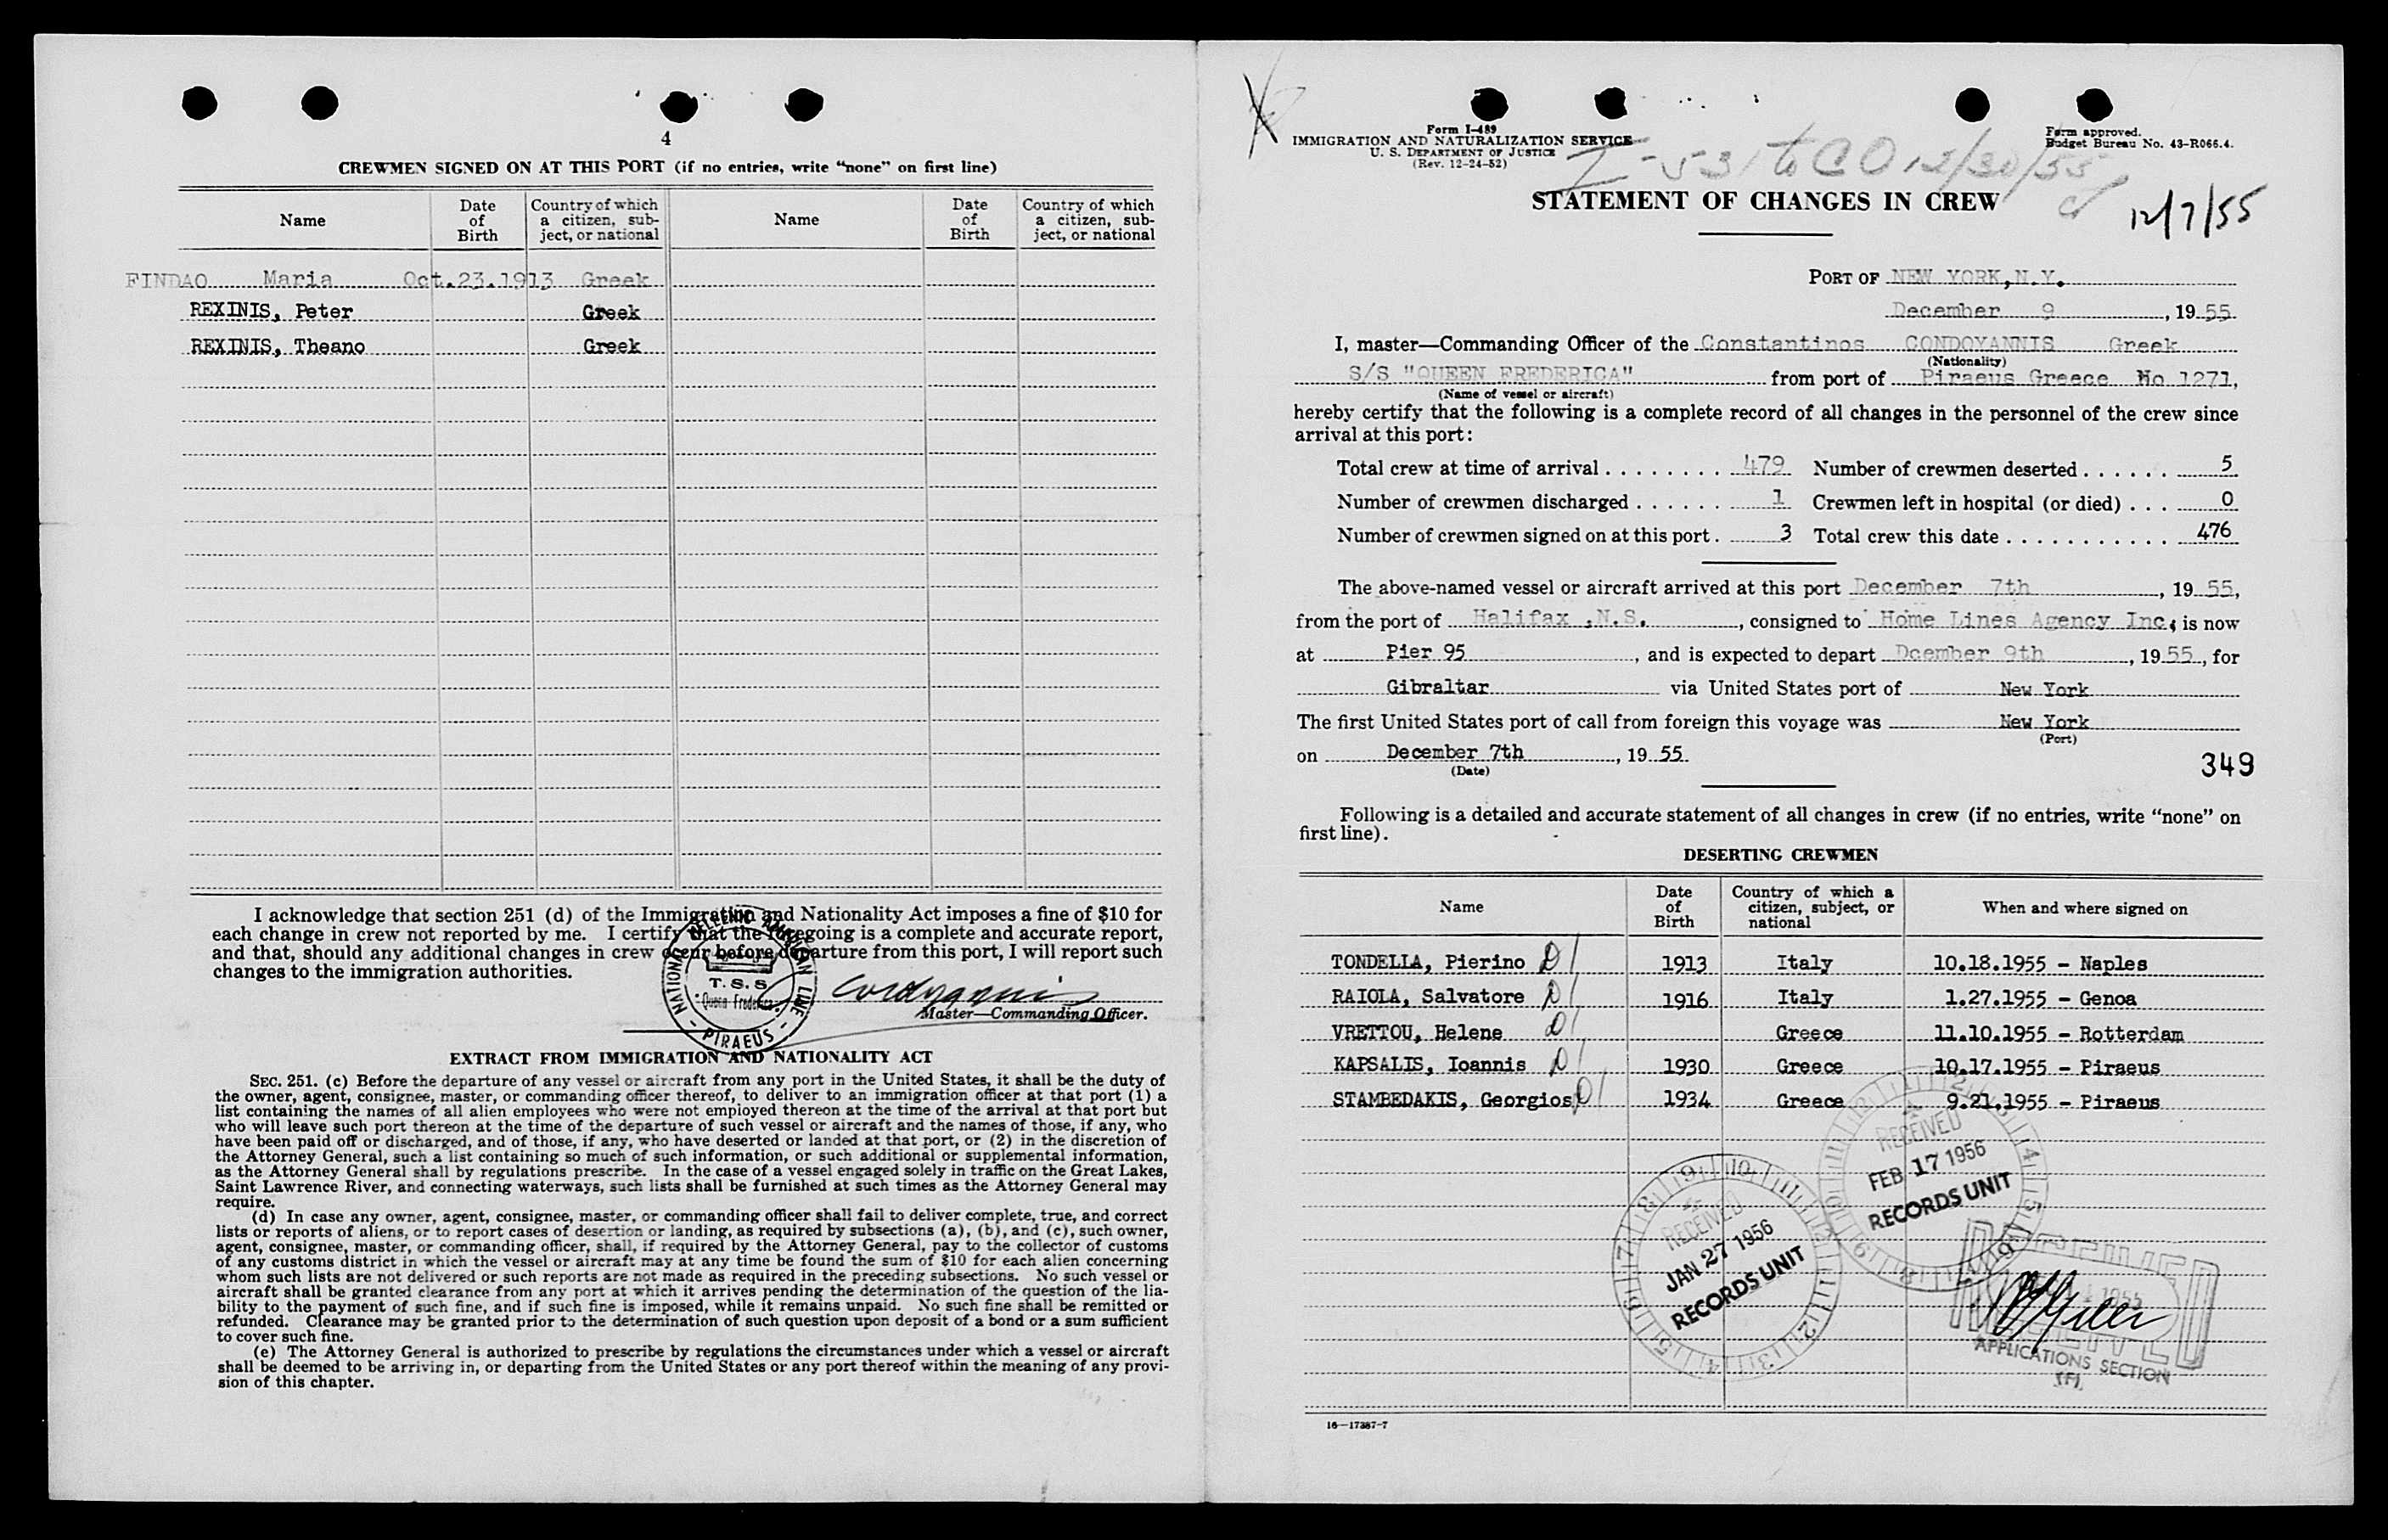 4
CREWMEN SIGNED ON AT THIS PORT (if no entries, write "none" on first line)
Name Date of Birth Country of which a citizen, subject, or national Name Date of Birth Country of which a citizen, subject, or national
FINDAO Maria Oct.23.1913 Greek
REXINIS, Peter Greek
REXINIS, Theano Greek
I acknowledge that section 251 (d) of the Immigration and Nationality Act imposes a fine of $10 for
each change in crew not reported by me. I certify that the foregoing is a complete and accurate report,
and that, should any additional changes in crew occur before departure from this port, I will report such
changes to the immigration authorities.
NATIONAL HELLENIC AMERICAN LINE
T.S.S.
"Queen Frederica"
- PIRAEUS -
Master—Commanding Officer.
EXTRACT FROM IMMIGRATION AND NATIONALITY ACT
SEC. 251. (c) Before the departure of any vessel or aircraft from any port in the United States, it shall be the duty of
the owner, agent, consignee, master, or commanding officer thereof, to deliver to an immigration officer at that port (1) a
list containing the names of all alien employees who were not employed thereon at the time of the arrival at that port but
who will leave such port thereon at the time of the departure of such vessel or aircraft and the names of those, if any, who
have been paid off or discharged, and of those, if any, who have deserted or landed at that port, or (2) in the discretion of
the Attorney General, such a list containing so much of such information, or such additional or supplemental information,
as the Attorney General shall by regulations prescribe. In the case of a vessel engaged solely in traffic on the Great Lakes,
Saint Lawrence River, and connecting waterways, such lists shall be furnished at such times as the Attorney General may
require.
(d) In case any owner, agent, consignee, master, or commanding officer shall fail to deliver complete, true, and correct
lists or reports of aliens, or to report cases of desertion or landing, as required by subsections (a), (b), and (c), such owner,
agent, consignee, master, or commanding officer, shall, if required by the Attorney General, pay to the collector of customs
of any customs district in which the vessel or aircraft may at any time be found the sum of $10 for each alien concerning
whom such lists are not delivered or such reports are not made as required in the preceding subsections. No such vessel or
aircraft shall be granted clearance from any port at which it arrives pending the determination of the question of the lia-
bility to the payment of such fine, and if such fine is imposed, while it remains unpaid. No such fine shall be remitted or
refunded. Clearance may be granted prior to the determination of such question upon deposit of a bond or a sum sufficient
to cover such fine.
(e) The Attorney General is authorized to prescribe by regulations the circumstances under which a vessel or aircraft
shall be deemed to be arriving in, or departing from the United States or any port thereof within the meaning of any provi-
sion of this chapter.
Form I-489
IMMIGRATION AND NATURALIZATION SERVICE
U. S. DEPARTMENT OF JUSTICE
(Rev. 12-24-52)
Form approved.
Budget Bureau No. 43-R066.4.
I-531 to CO 12/30/55
STATEMENT OF CHANGES IN CREW
12/7/55
PORT OF NEW YORK,N.Y.
December 9, 1955
I, master—Commanding Officer of the Constantinos CONDOYANNIS Greek
(Nationality)
S/S "QUEEN FREDERICA" from port of Piraeus Greece No 1271,
(Name of vessel or aircraft)
hereby certify that the following is a complete record of all changes in the personnel of the crew since
arrival at this port:
Total crew at time of arrival . . . . . . . . 479 Number of crewmen deserted . . . . . . 5
Number of crewmen discharged . . . . . . 1 Crewmen left in hospital (or died) . . . 0
Number of crewmen signed on at this port . 3 Total crew this date . . . . . . . . . . . . 476
The above-named vessel or aircraft arrived at this port December 7th, 1955,
from the port of Halifax ,N.S., consigned to Home Lines Agency Inc, is now
at Pier 95, and is expected to depart Dcember 9th, 1955, for
Gibraltar via United States port of New York
The first United States port of call from foreign this voyage was New York
(Port)
on December 7th, 1955.
(Date)
349
Following is a detailed and accurate statement of all changes in crew (if no entries, write "none" on
first line).
DESERTING CREWMEN
Name Date of Birth Country of which a citizen, subject, or national When and where signed on
TONDELLA, Pierino D/ 1913 Italy 10.18.1955 - Naples
RAIOLA, Salvatore D/ 1916 Italy 1.27.1955 - Genoa
VRETTOU, Helene D/ Greece 11.10.1955 - Rotterdam
KAPSALIS, Ioannis D/ 1930 Greece 10.17.1955 - Piraeus
STAMBEDAKIS, Georgios D/ 1934 Greece 9.21.1955 - Piraeus
RECEIVED
FEB 17 1956
RECORDS UNIT
RECEIVED
JAN 27 1956
RECORDS UNIT
1955
APPLICATIONS SECTION
16—17387-7